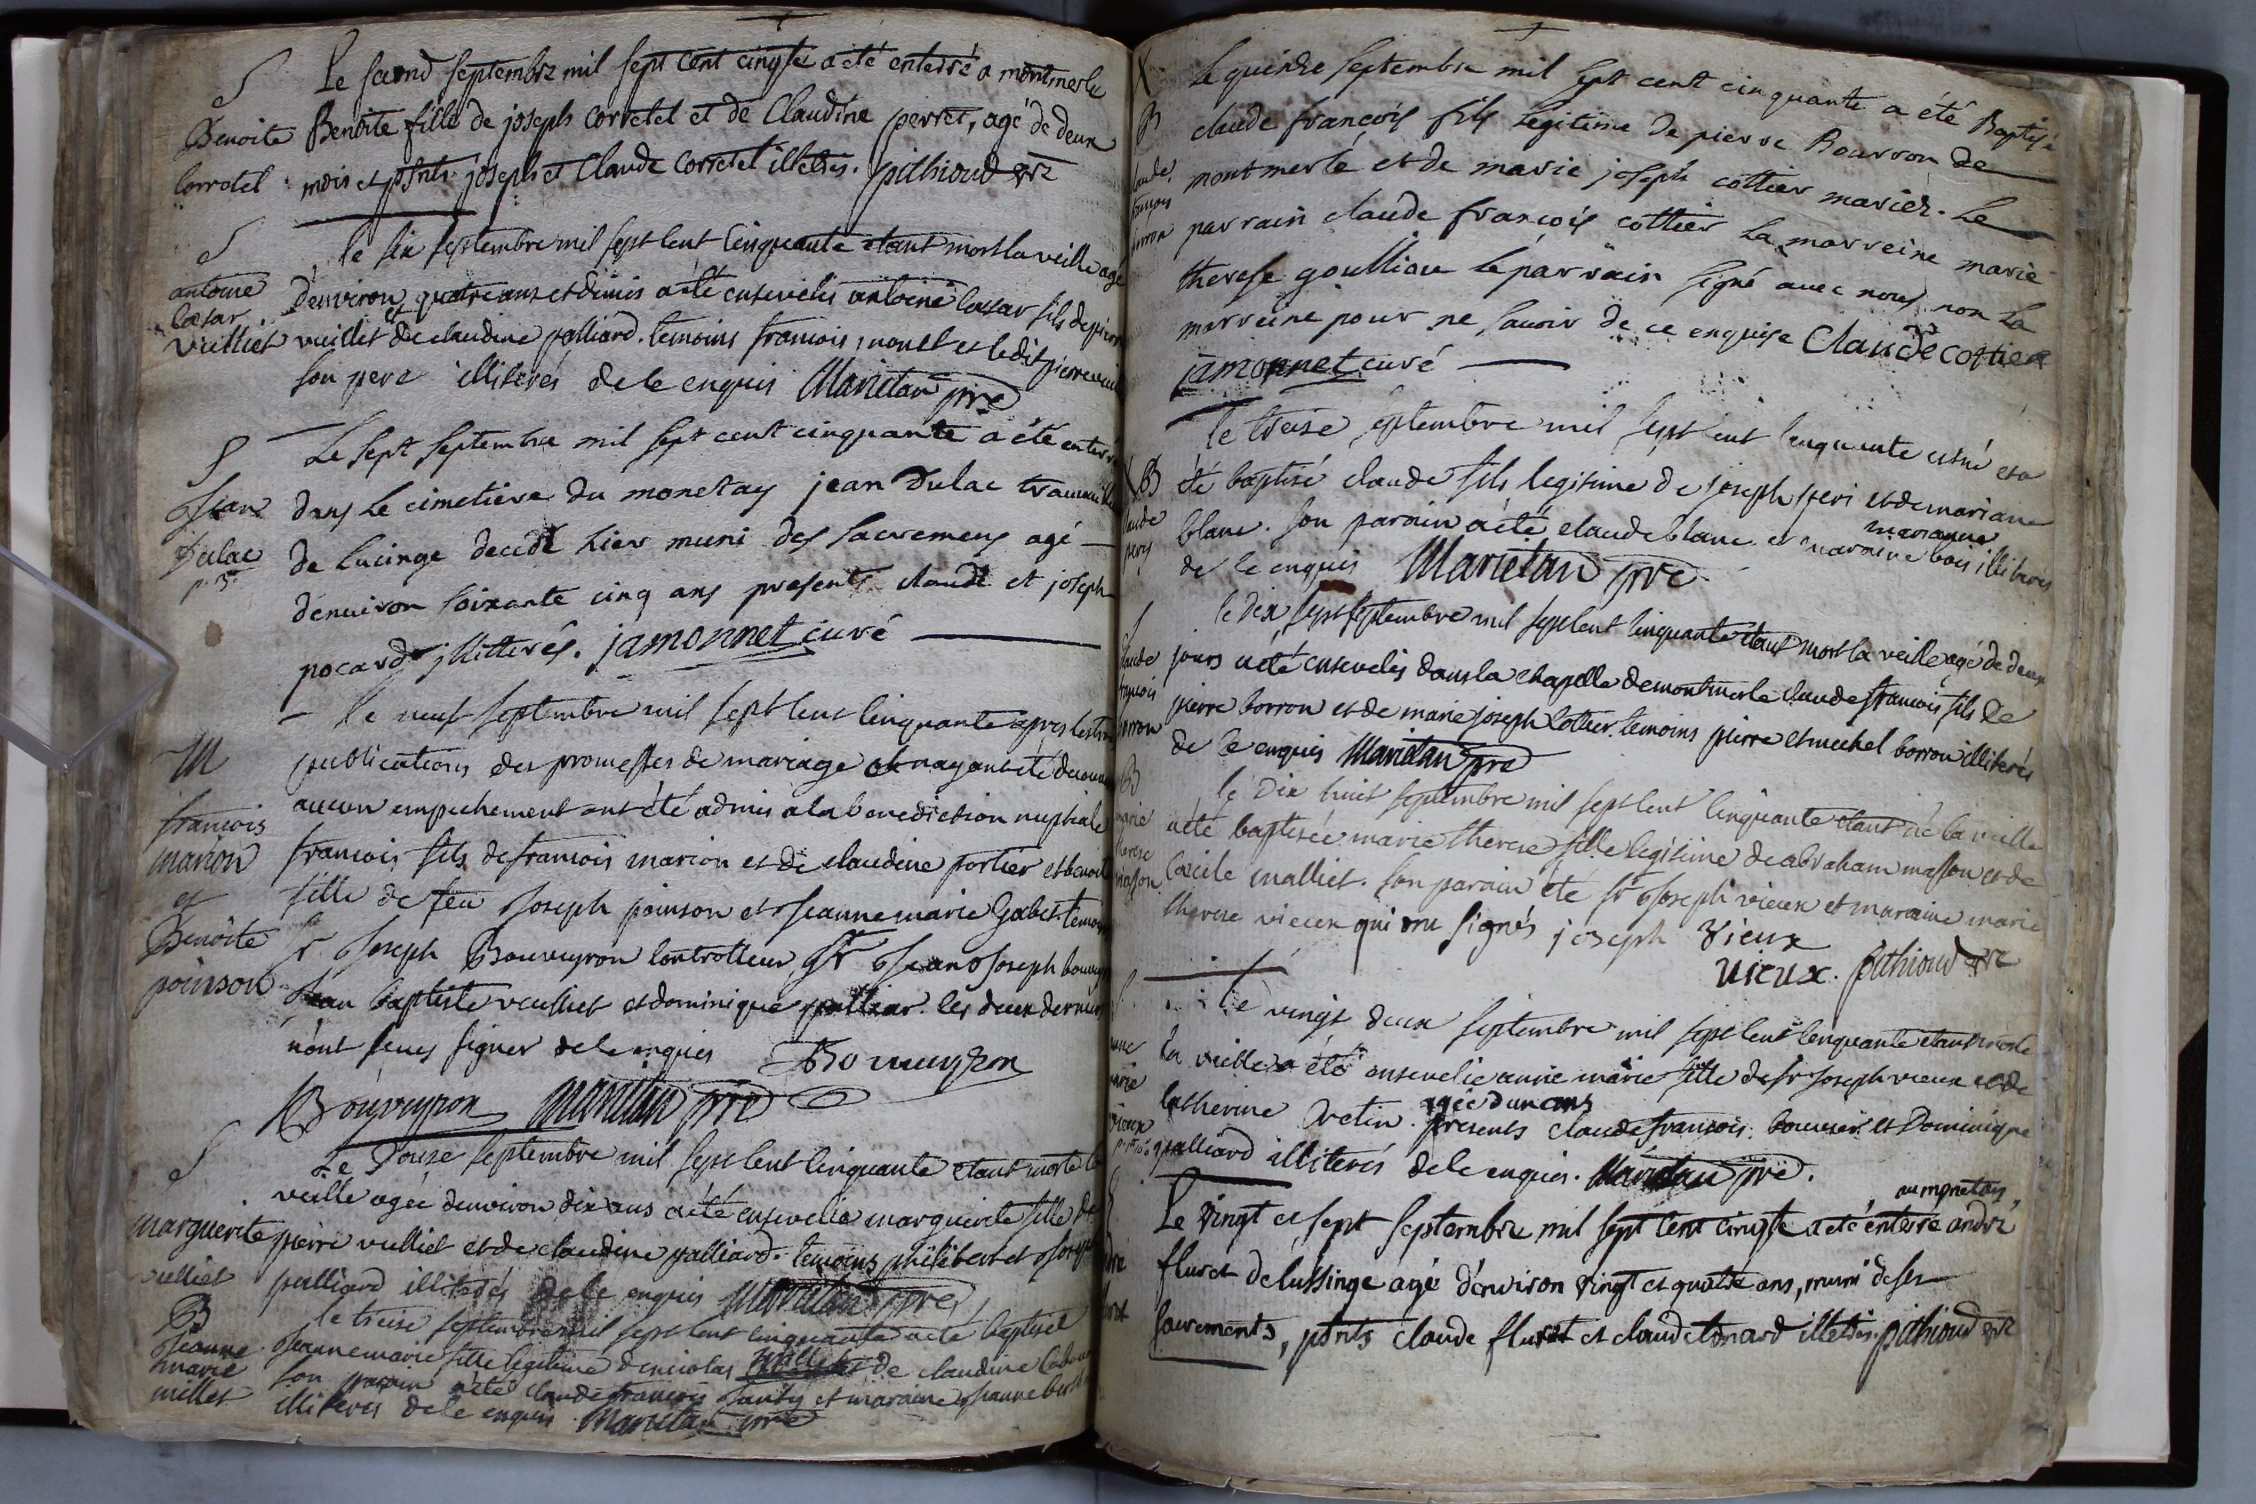 S
Benoite
Corretel
Le second septembre mil sept cent cinqte a été enterré a montmerle
Benoite fille de joseph Corretel et de Claudine perret, agé de deux
mois et pnts joseph et Claude Corretel illetrés. pithioud ptre
S
antoine
Cæsar
vuilliet
le six septembre mil sept cent cinquante etant mort la veille agé
d'environ quatre ans et demis a été ensevelis antoine Cæsar fils de pierre
vuillet et de claudine palliard. temoins francois monet et ledit pierre
son pere illiterés de ce enquis Marietan pre
S
Jean
Dulac
Le sept septembre mil sept cent cinquante a été enterré
dans le cimetiere du monetay jean Dulac
de Lucinge decedé hier muni des sacremens agé
d'environ soixante cinq ans presents claude et joseph
pocard jllitterés. jamonnet curé
M
francois
marion
et
Benoite
poinson
le neuf septembre mil sept cent cinquante apres les trois
publications des promesses de mariage et n'ayant été decouvert
aucun empechement ont été admis a la benediction nuptiale
francois fils de francois marion et de claudine portier et benoite
fille de feu Joseph poinson et Jeanne marie Gabet temoins
sr Joseph Bouveyron Controlleur, Sr Jean Joseph
Jean baptiste veulliet et dominique palliar. les deux derniers
n'ont sçeus signer de ce enquis Bouveyron
Bouveyron Marietan pre
S
marguerite
vulliet
Le Douze septembre mil sept cent cinquante etant morte la
veille agée d'environ dix ans a été ensevelie marguerite fille de
pierre vulliet et de claudine palliard. temoins philibert et Joseph
palliard illiterés de ce enquis Marietan pre
B
Jeanne
marie
millet
le treise septembre mil sept cent cinquante a été baptisée
Jeanne marie fille legitime de nicolas millet et de claudine
son parain a été claude francois et maraine Jeanne
illiterés de ce enquis Marietan pre
B
Le quinze septembre mil sept cent cinquante a été Baptisé
claude françois fils legitime de pierre Bourron de
montmerle et de marie joseph cottier mariez. Le
parrain claude françois cottier La marreine marie
therese goulliou le parrain signé avec nous non La
marreine pour ne savoir de ce enquise Claude Cottier
jamonnet curé
B
claude
pery
le treise septembre mil sept cent cinquante est né et a
été baptisé claude fils legitime de joseph peri et de mariane
blanc. son parain a été claude blanc et maraine marianne bois illiterés
de ce enquis Marietan pre
S
claude
francois
borron
le dix sept septembre mil sept cent cinquante etant mort la veille agé de deux
jours a été ensevelis dans la chapelle de montmerle claude francois fils de
pierre borron et de marie joseph Cottier. temoins pierre et michel borron illiterés
de ce enquis Marietan pre
B
marie
therese
masson
le Dix huit septembre mil sept cent cinquante etant né la veille
a été baptisée marie therese fille legitime de abraham masson et de
Cæcile malliet. son parain été sr Joseph vieux et maraine marie
therese vieux qui ont signés joseph Vieux
vieux. pithioud ptre
le vingt deux septembre mil sept cent cinquante etant morte
la veille a été ensevelie anne marie fille de sr Joseph vieux et de
Catherine Vretin agée d'un ans. presents claude francois bouvier et Dominique
palliard illiterés de ce enquis. Marietan pre.
Le Vingt et sept septembre mil sept cent cinqte a été enterré au monetay, andré
fluret de lussinge agé d'environ Vingt et quatre ans, muni de ses
sacrements, pnts claude fluret et claude tonard illetrés. pithioud ptre